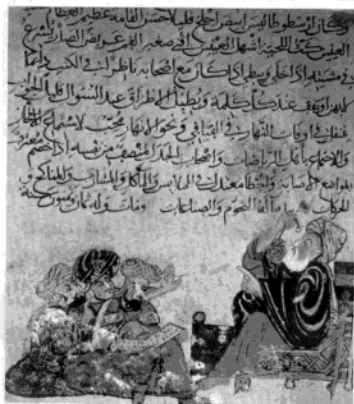 وكان ارسطوطاليس ابيض اجلح قليلا حسن القامة عظيم العظام
العينين كث اللحية اشهل العينين اقنى صغير الفم عريض الصدر يسرع
في مشيته اذا خلى ويبطى اذا كان مع اصحابه ناظرا في الكتب دائما
يهذى ويقف عند كل كلمة ويطيل الاطراق عند السؤال قليل الجواب
متنقلا في اوقات النهار في الفيافي ونحو الانهار محب لاستماع الالحان
والاجتماع باهل الرياضات واصحاب الجدل منصف من نفسه اذا خصم معترف
المواضع الاصابة والخطا معتدل في الملابس والمآكل والمشارب والمناكح و
الحركات النجوم والساعات ومات وله ثمان وستون سنة